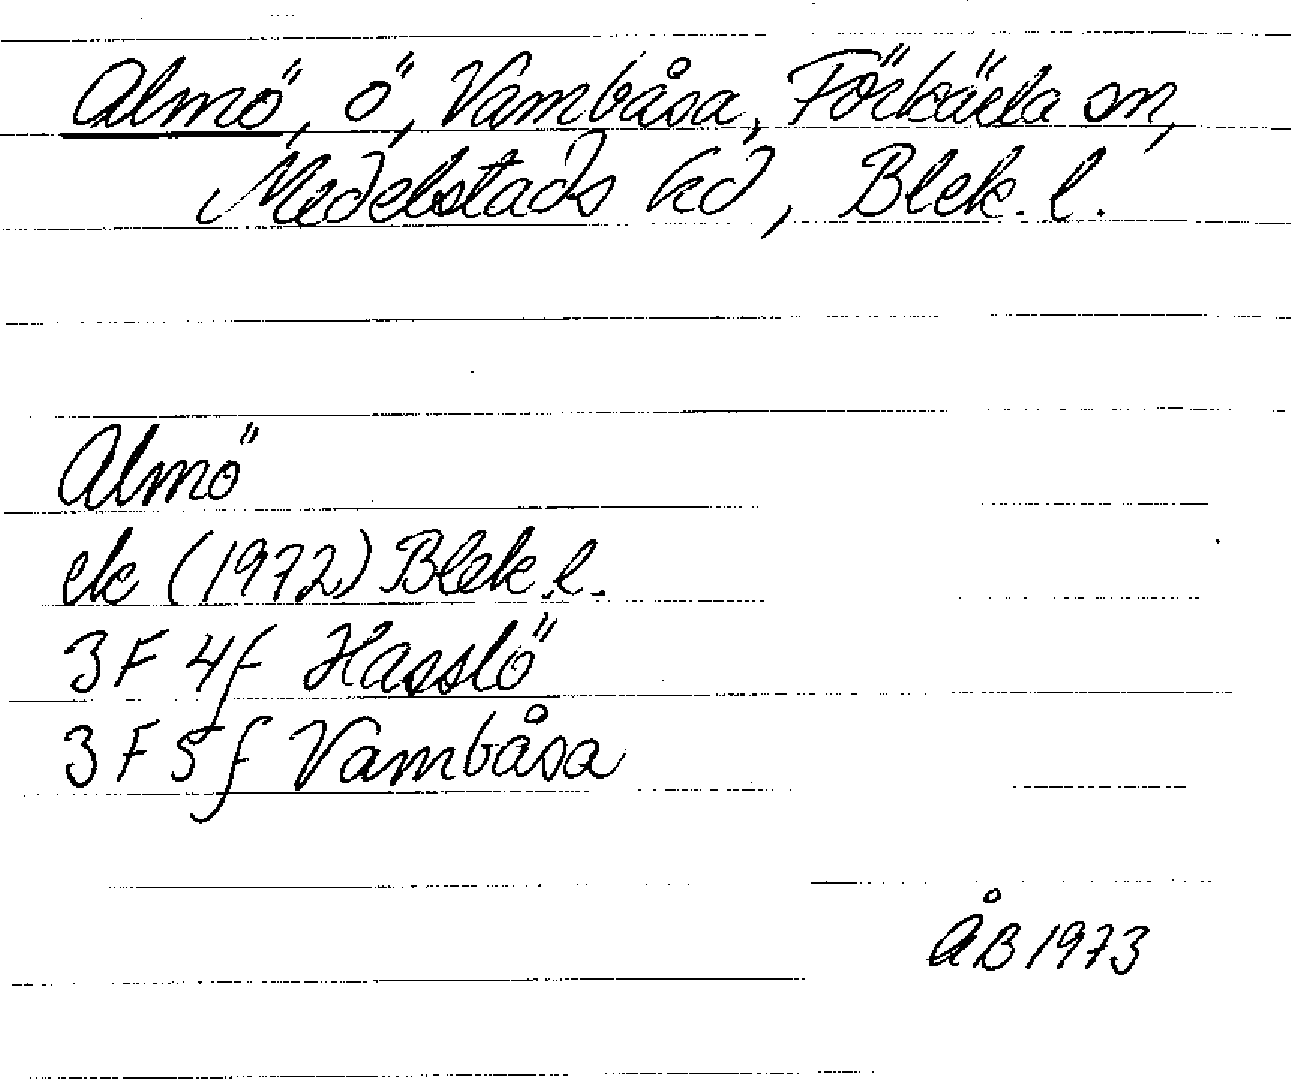 Almö, ö, Vambåsa, Förkärla sn,
Medelstads hd, Blek. l.
Almö
ek (1972) Blek. l.
3 F 4f Hasslö
3 F 5f Vambåsa
ÅB 1973